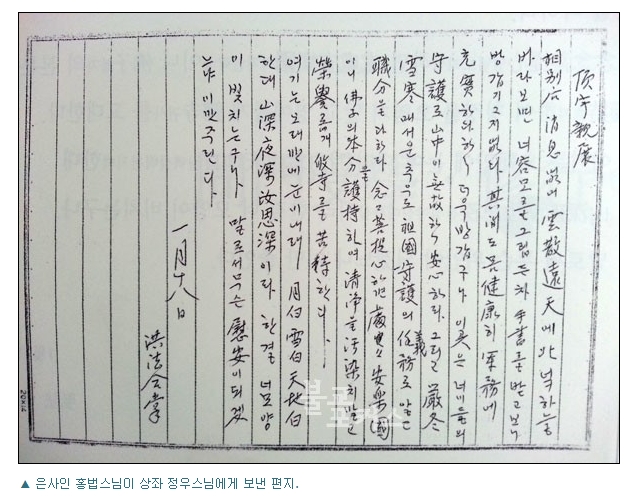 頂宇親展
相別后 消息 없어 雲散遠天에 北녘하늘
바라보며 너容모를 그립든차 手書를 받고 보니
반갑기 그지없다. 其間도 몸健康히 軍務에
充實하 하니 더욱 반갑구나 이곳은 너이들의
守護로 山中이 無故하니 安心하라. 그러나 嚴冬
雪寒 매서운 추위로 祖國守護의 義務로 맡은
職分을 다하라 念々菩提心하면 處處安樂(國)
이니 佛子의 本分을 護持하여 清浄을 汚染치 말고
榮譽롭게 皈寺를 苦待한다.
여기는 오래만에 눈이 내려 月白 雪白 天地白
한대 山深夜深汝思深이다. 한결 너 모양
이 빛치는구나. 말로서 무슨 慰安이 되겠
느냐 이만 주린다.
一月十八日
洪法合掌
불교
포커스
▲ 은사인 홍법스님이 상좌 정우스님에게 보낸 편지.